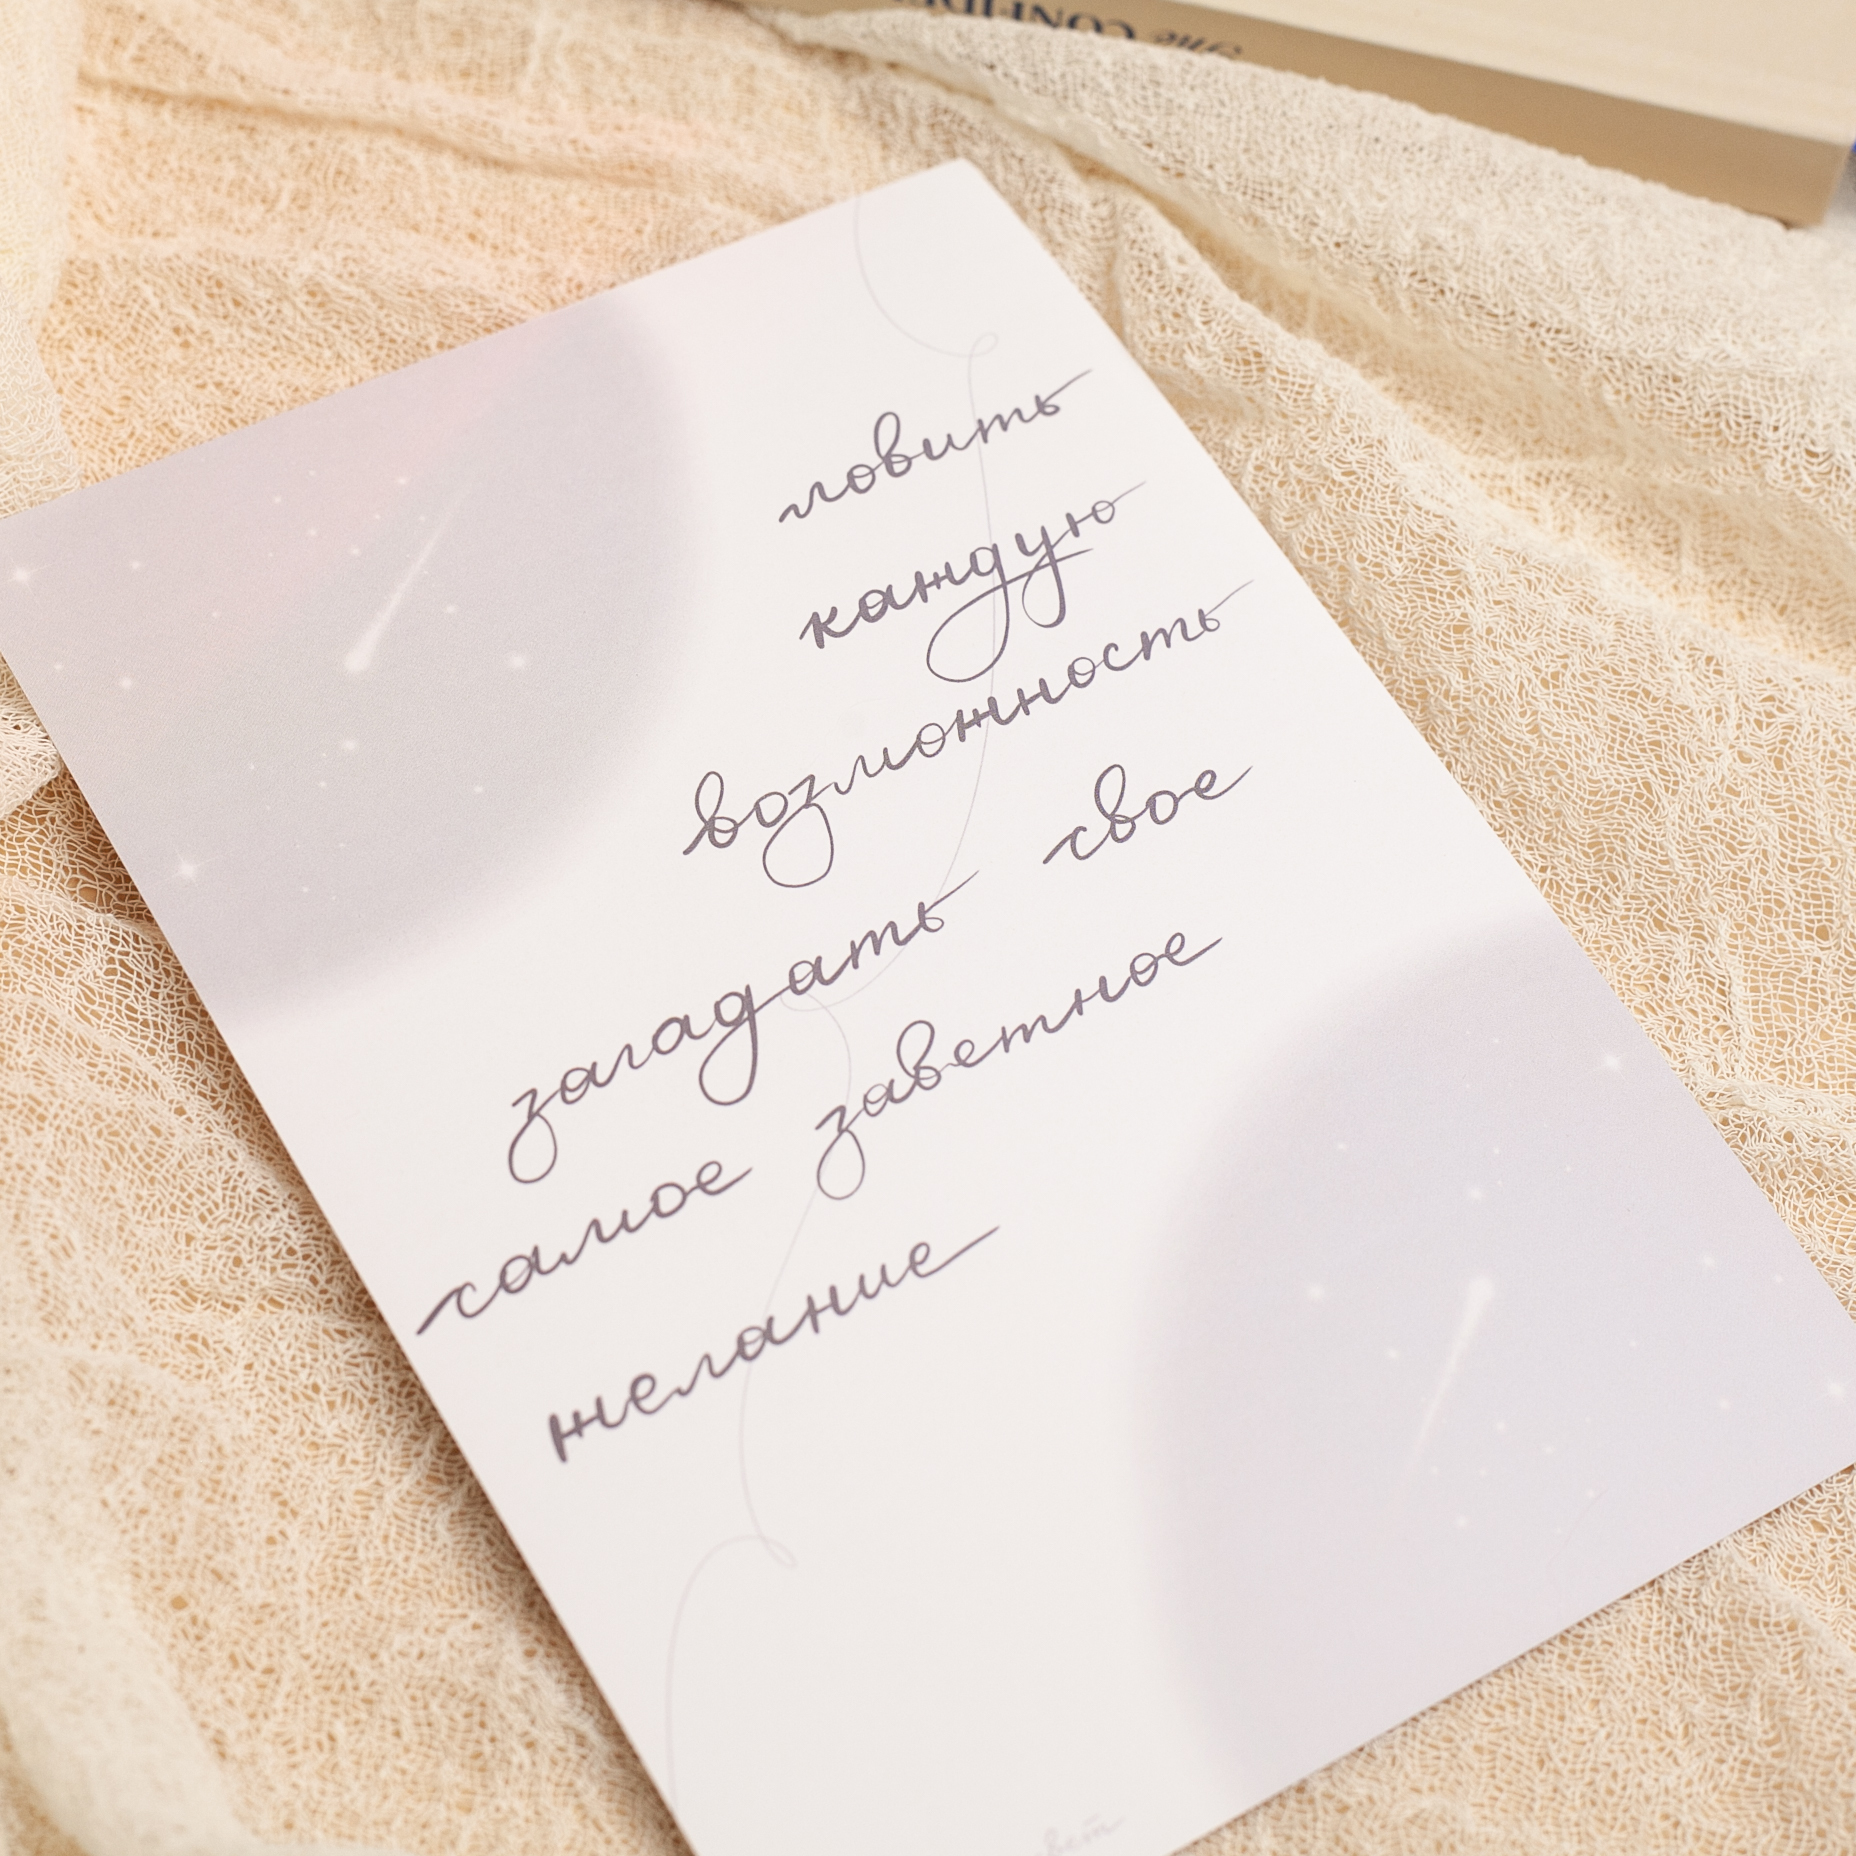 The CONFIDE
ловить
каждую
возможность
загадать свое
самое заветное
желание